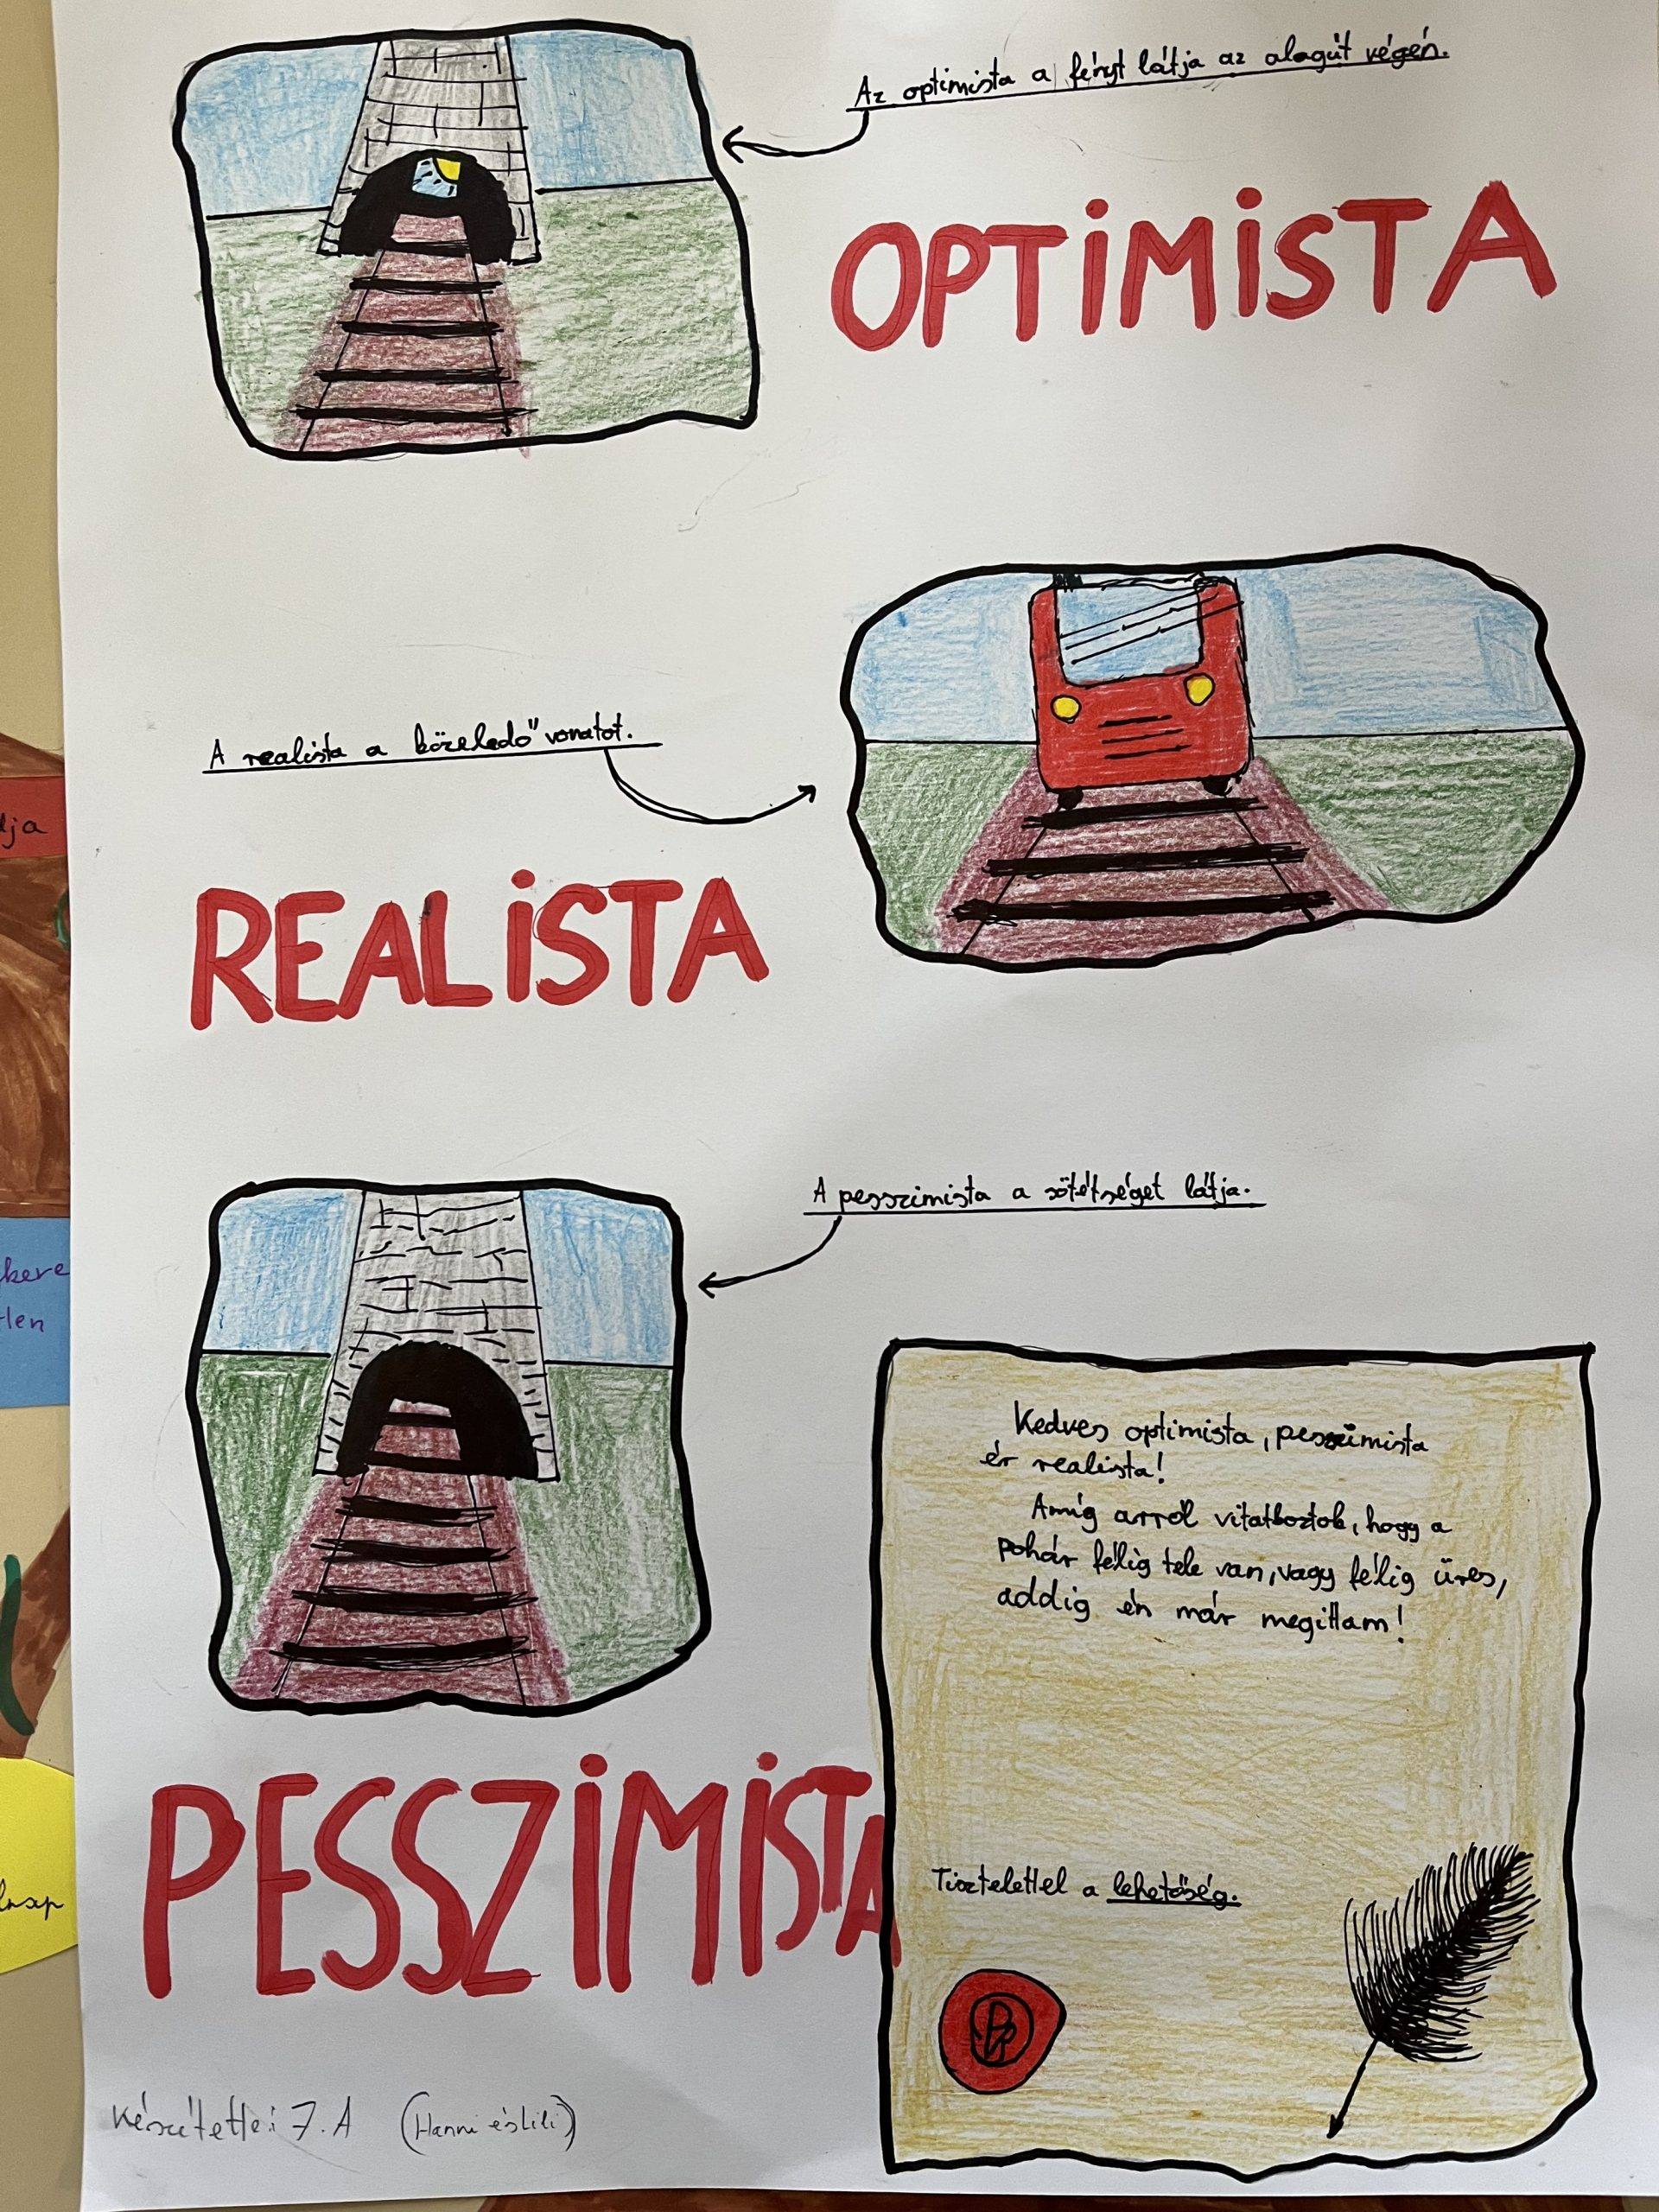 Az optimista a fényt látja az alagút végén.
OPTIMISTA
A realista a közeledő vonatot.
REALISTA
A pesszimista a sötétséget látja.
PESSZIMISTA
Kedves optimista, pesszimista
és realista!
Amíg arról vitatkoztok, hogy a
pohár félig tele van, vagy félig üres,
addig én már megittam!
Tisztelettel a lehetőség.
Készítette: 7.A (Hanni és Lili)